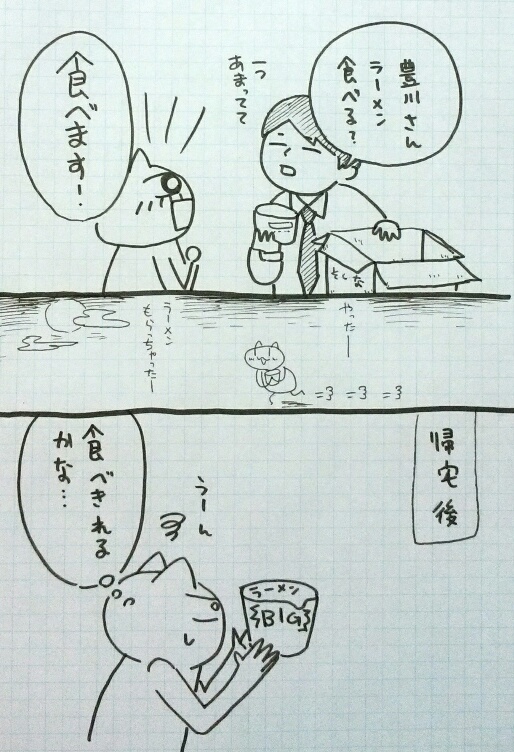 豊川さん
ラーメン
食べる?
一つ
あまってて
食べます!
やったー
ラーメン
もらっちゃったー
帰宅後
食べきれる
かな…
うーん
ラーメン
BIG